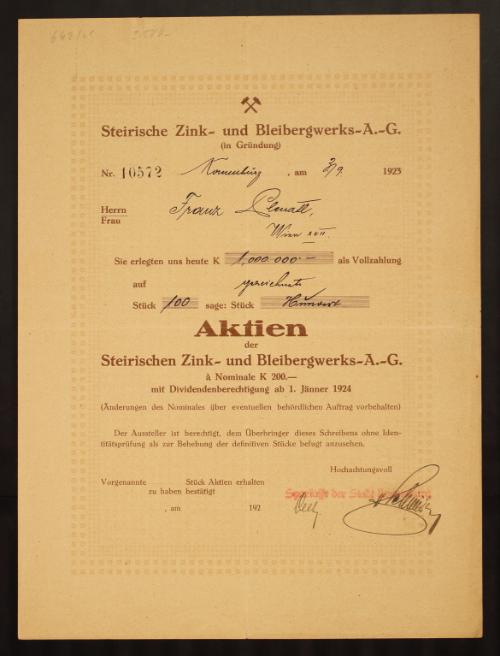 Steirische Zink- und Bleibergwerks-A.-G.
(in Gründung)
Nr. 10572 Korneuburg, am 3/9. 1923
Herrn
Frau
Franz
Wien XVII.
Sie erlegten uns heute K 1,000.000.— als Vollzahlung
auf gezeichnete
Stück 100 sage: Stück Hundert
Aktien
der
Steirischen Zink- und Bleibergwerks-A.-G.
à Nominale K 200.—
mit Dividendenberechtigung ab 1. Jänner 1924
(Änderungen des Nominales über eventuellen behördlichen Auftrag vorbehalten)
Der Aussteller ist berechtigt, dem Überbringer dieses Schreibens ohne Iden-
titätsprüfung als zur Behebung der definitiven Stücke befugt anzusehen.
Hochachtungsvoll
Vorgenannte Stück Aktien erhalten
zu haben bestätigt
Sparkasse der Stadt
, am 192